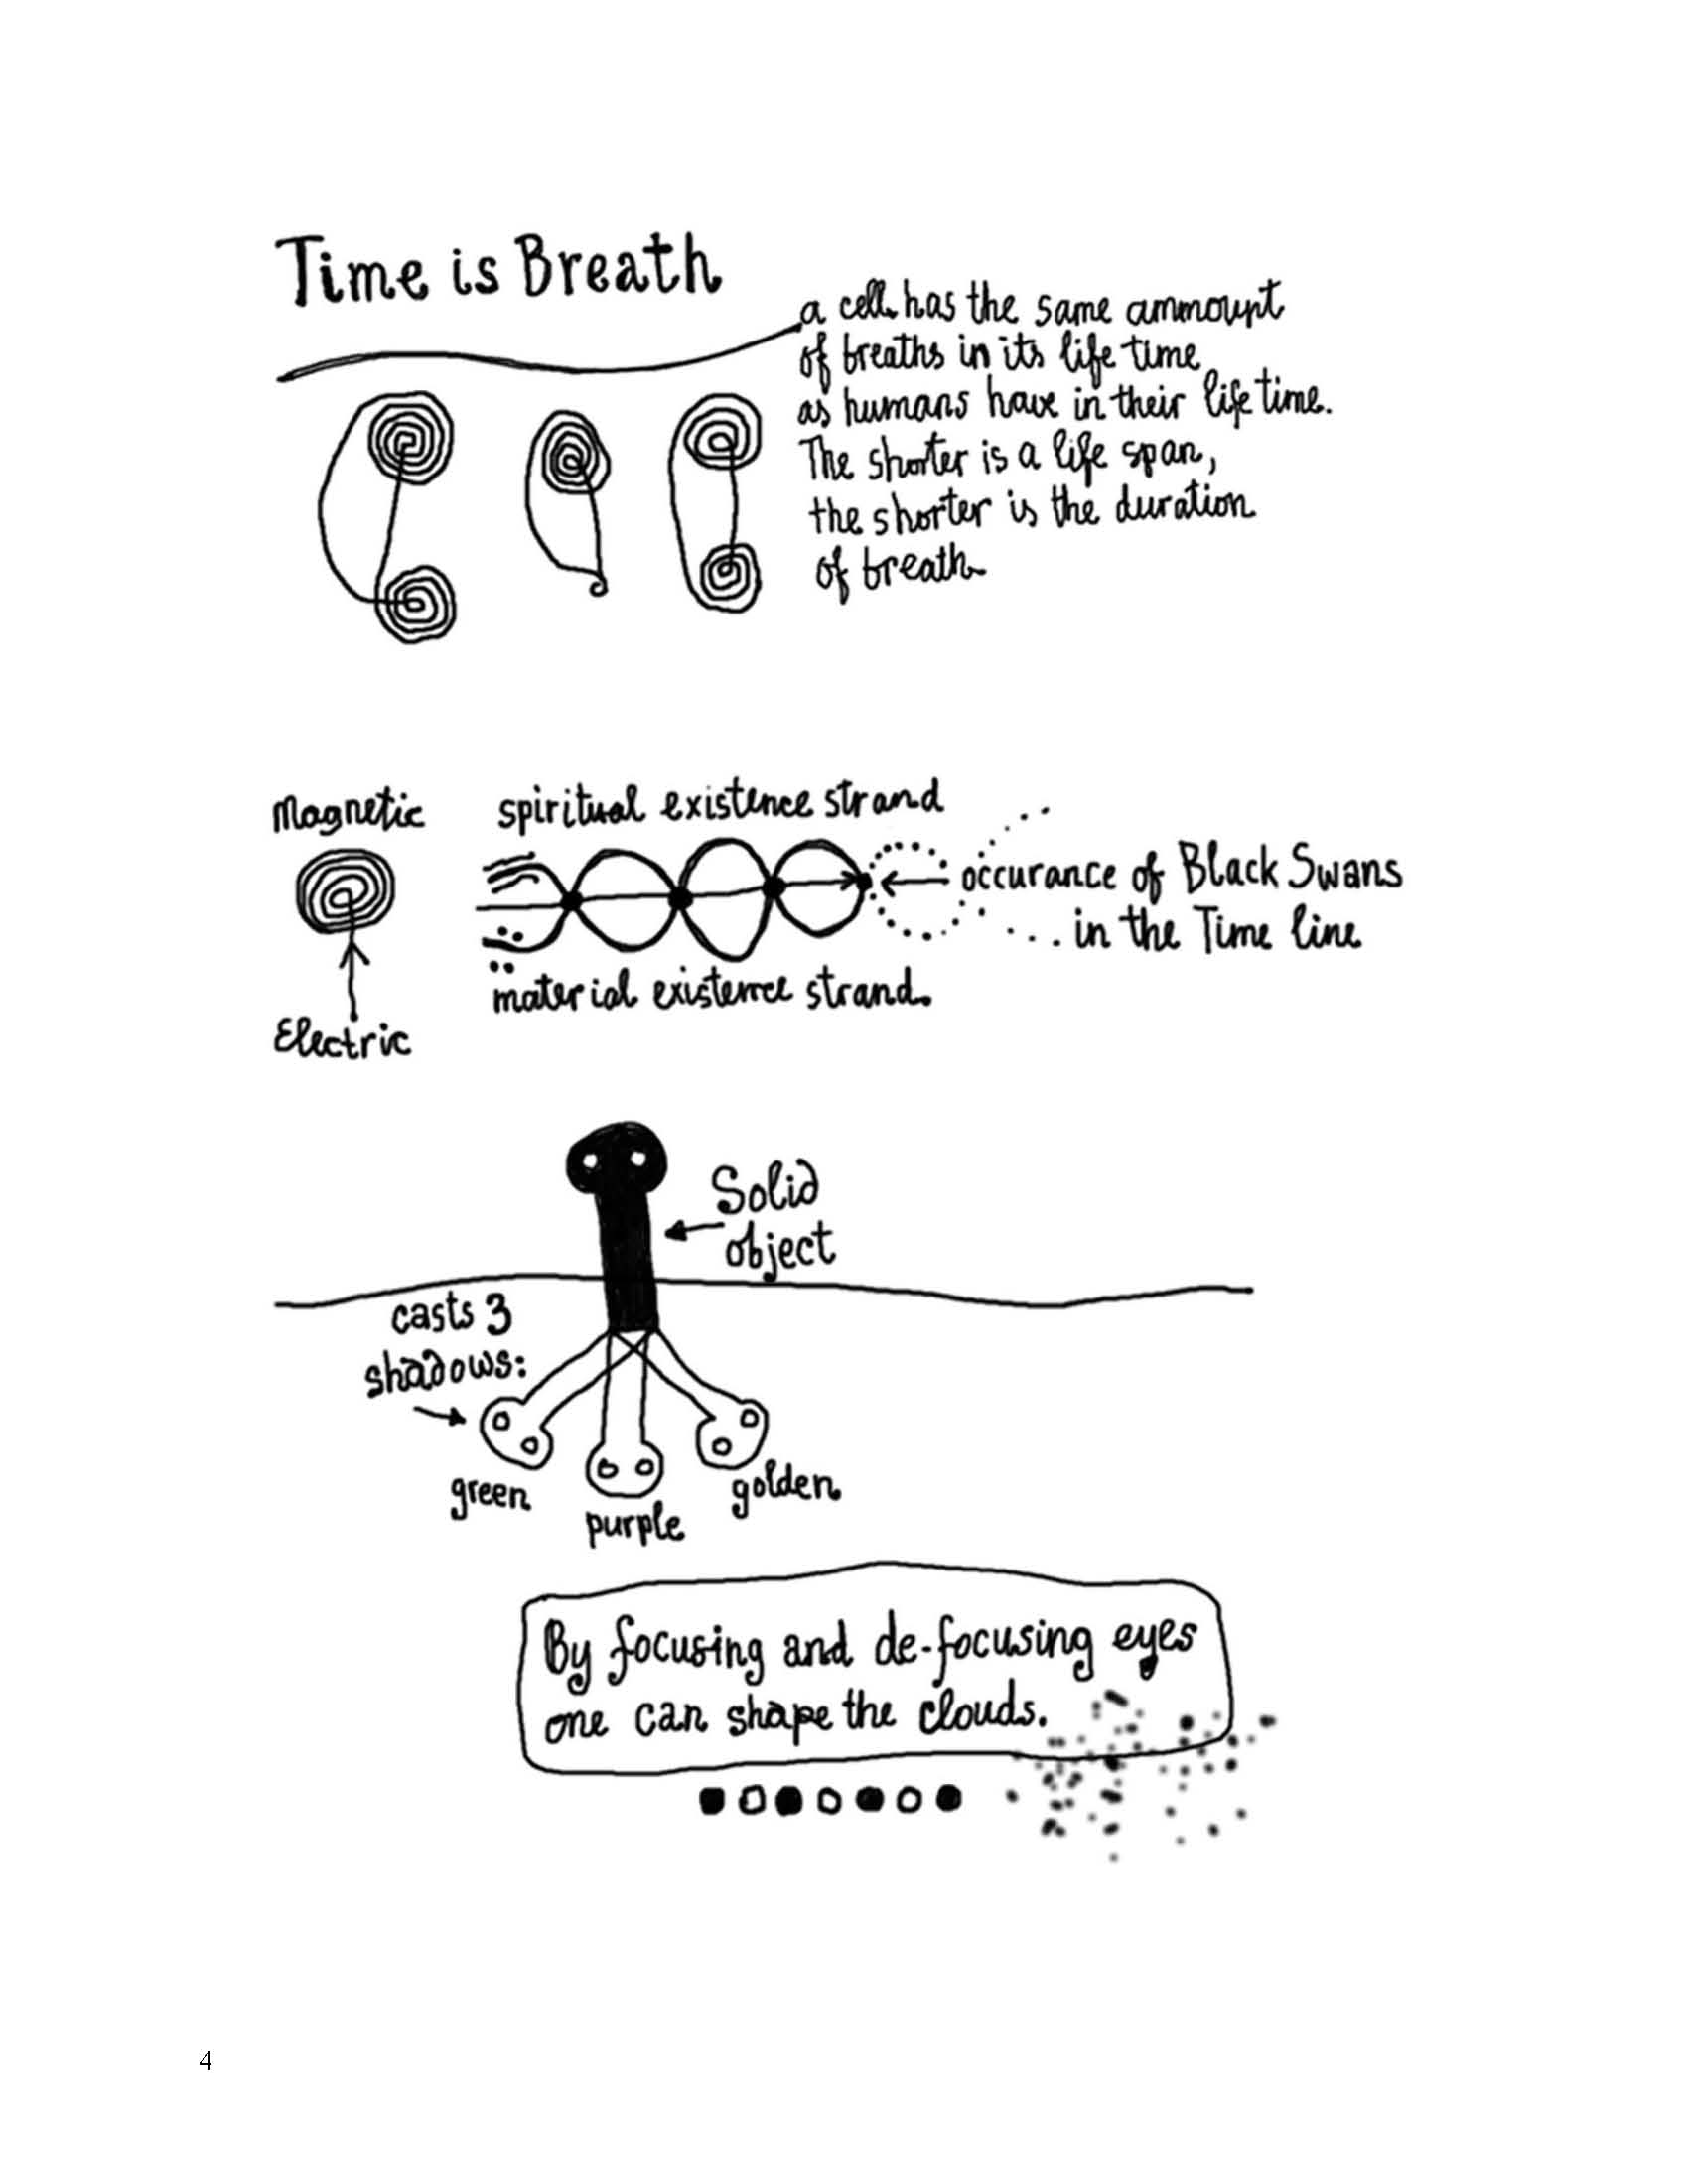 Time is Breath
a cell has the same ammount
of breaths in its life time
as humans have in their life time.
The shorter is a life span,
the shorter is the duration
of breath
Magnetic
Electric
spiritual existence strand
occurance of Black Swans
in the Time line
material existence strand.
Solid
object
casts 3
shadows:
green
purple
golden
By focusing and de-focusing eyes
one can shape the clouds.
4